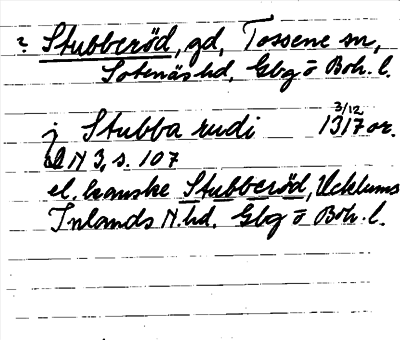 ? Stubberöd, gd, Tossene sn,
Sotenäs hd, Gbg o Boh. l.
3/12
j Stubba rudi 1317 or.
DN 3, s. 107
el. kanske Stubberöd, Ucklums
Inlands N. hd. Gbg o Boh. l.